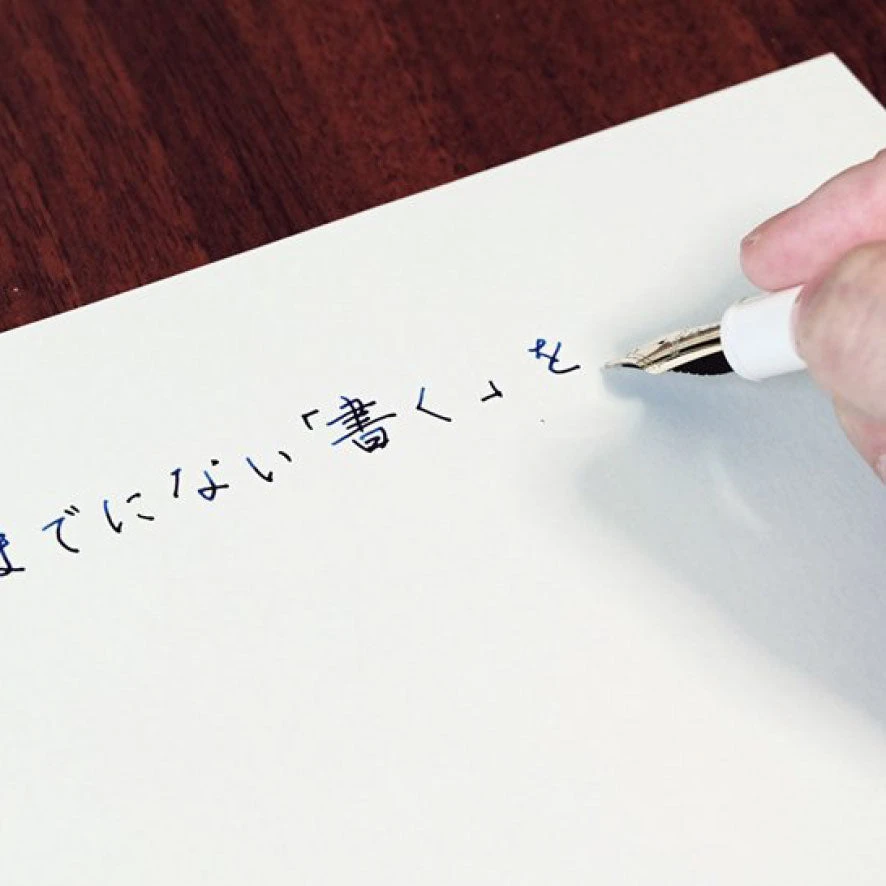 までにない「書く」を